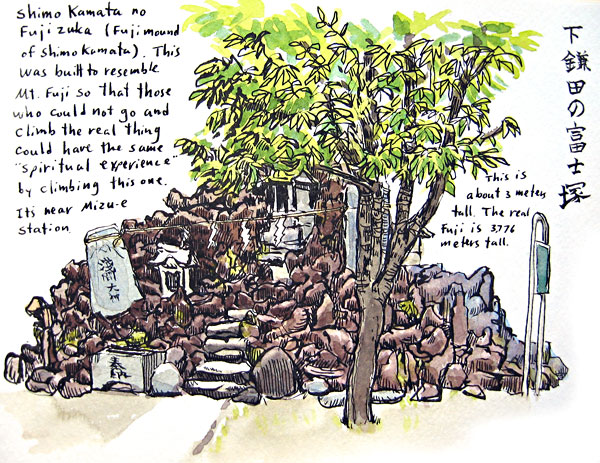 Shimo Kamata no
Fuji zuka (Fuji mound
of Shimo Kamata). This
was built to resemble
Mt. Fuji so that those
who could not go and
climb the real thing
could have the same
"spiritual experience"
by climbing this one.
Its near Mizu-e
Station
下鎌田の富士塚
This is
about 3 meters
tall. The real
Fuji is 3,776
meters tall.
大
奉